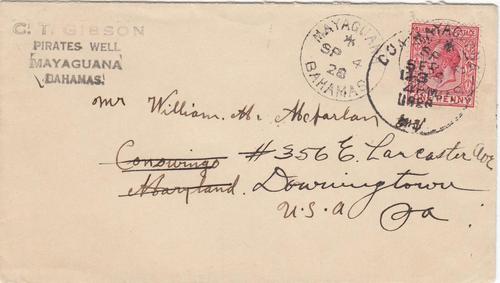 C. T. GIBSON
PIRATES WELL
MAYAGUANA
BAHAMAS.
MAYAGUANA
SP 4
28
BAHAMAS
PENNY
Mr William. Mc. Mcfarlan
Conowingo #356 E. Lancaster Ave
Maryland. Downingtown
U.S.A Pa